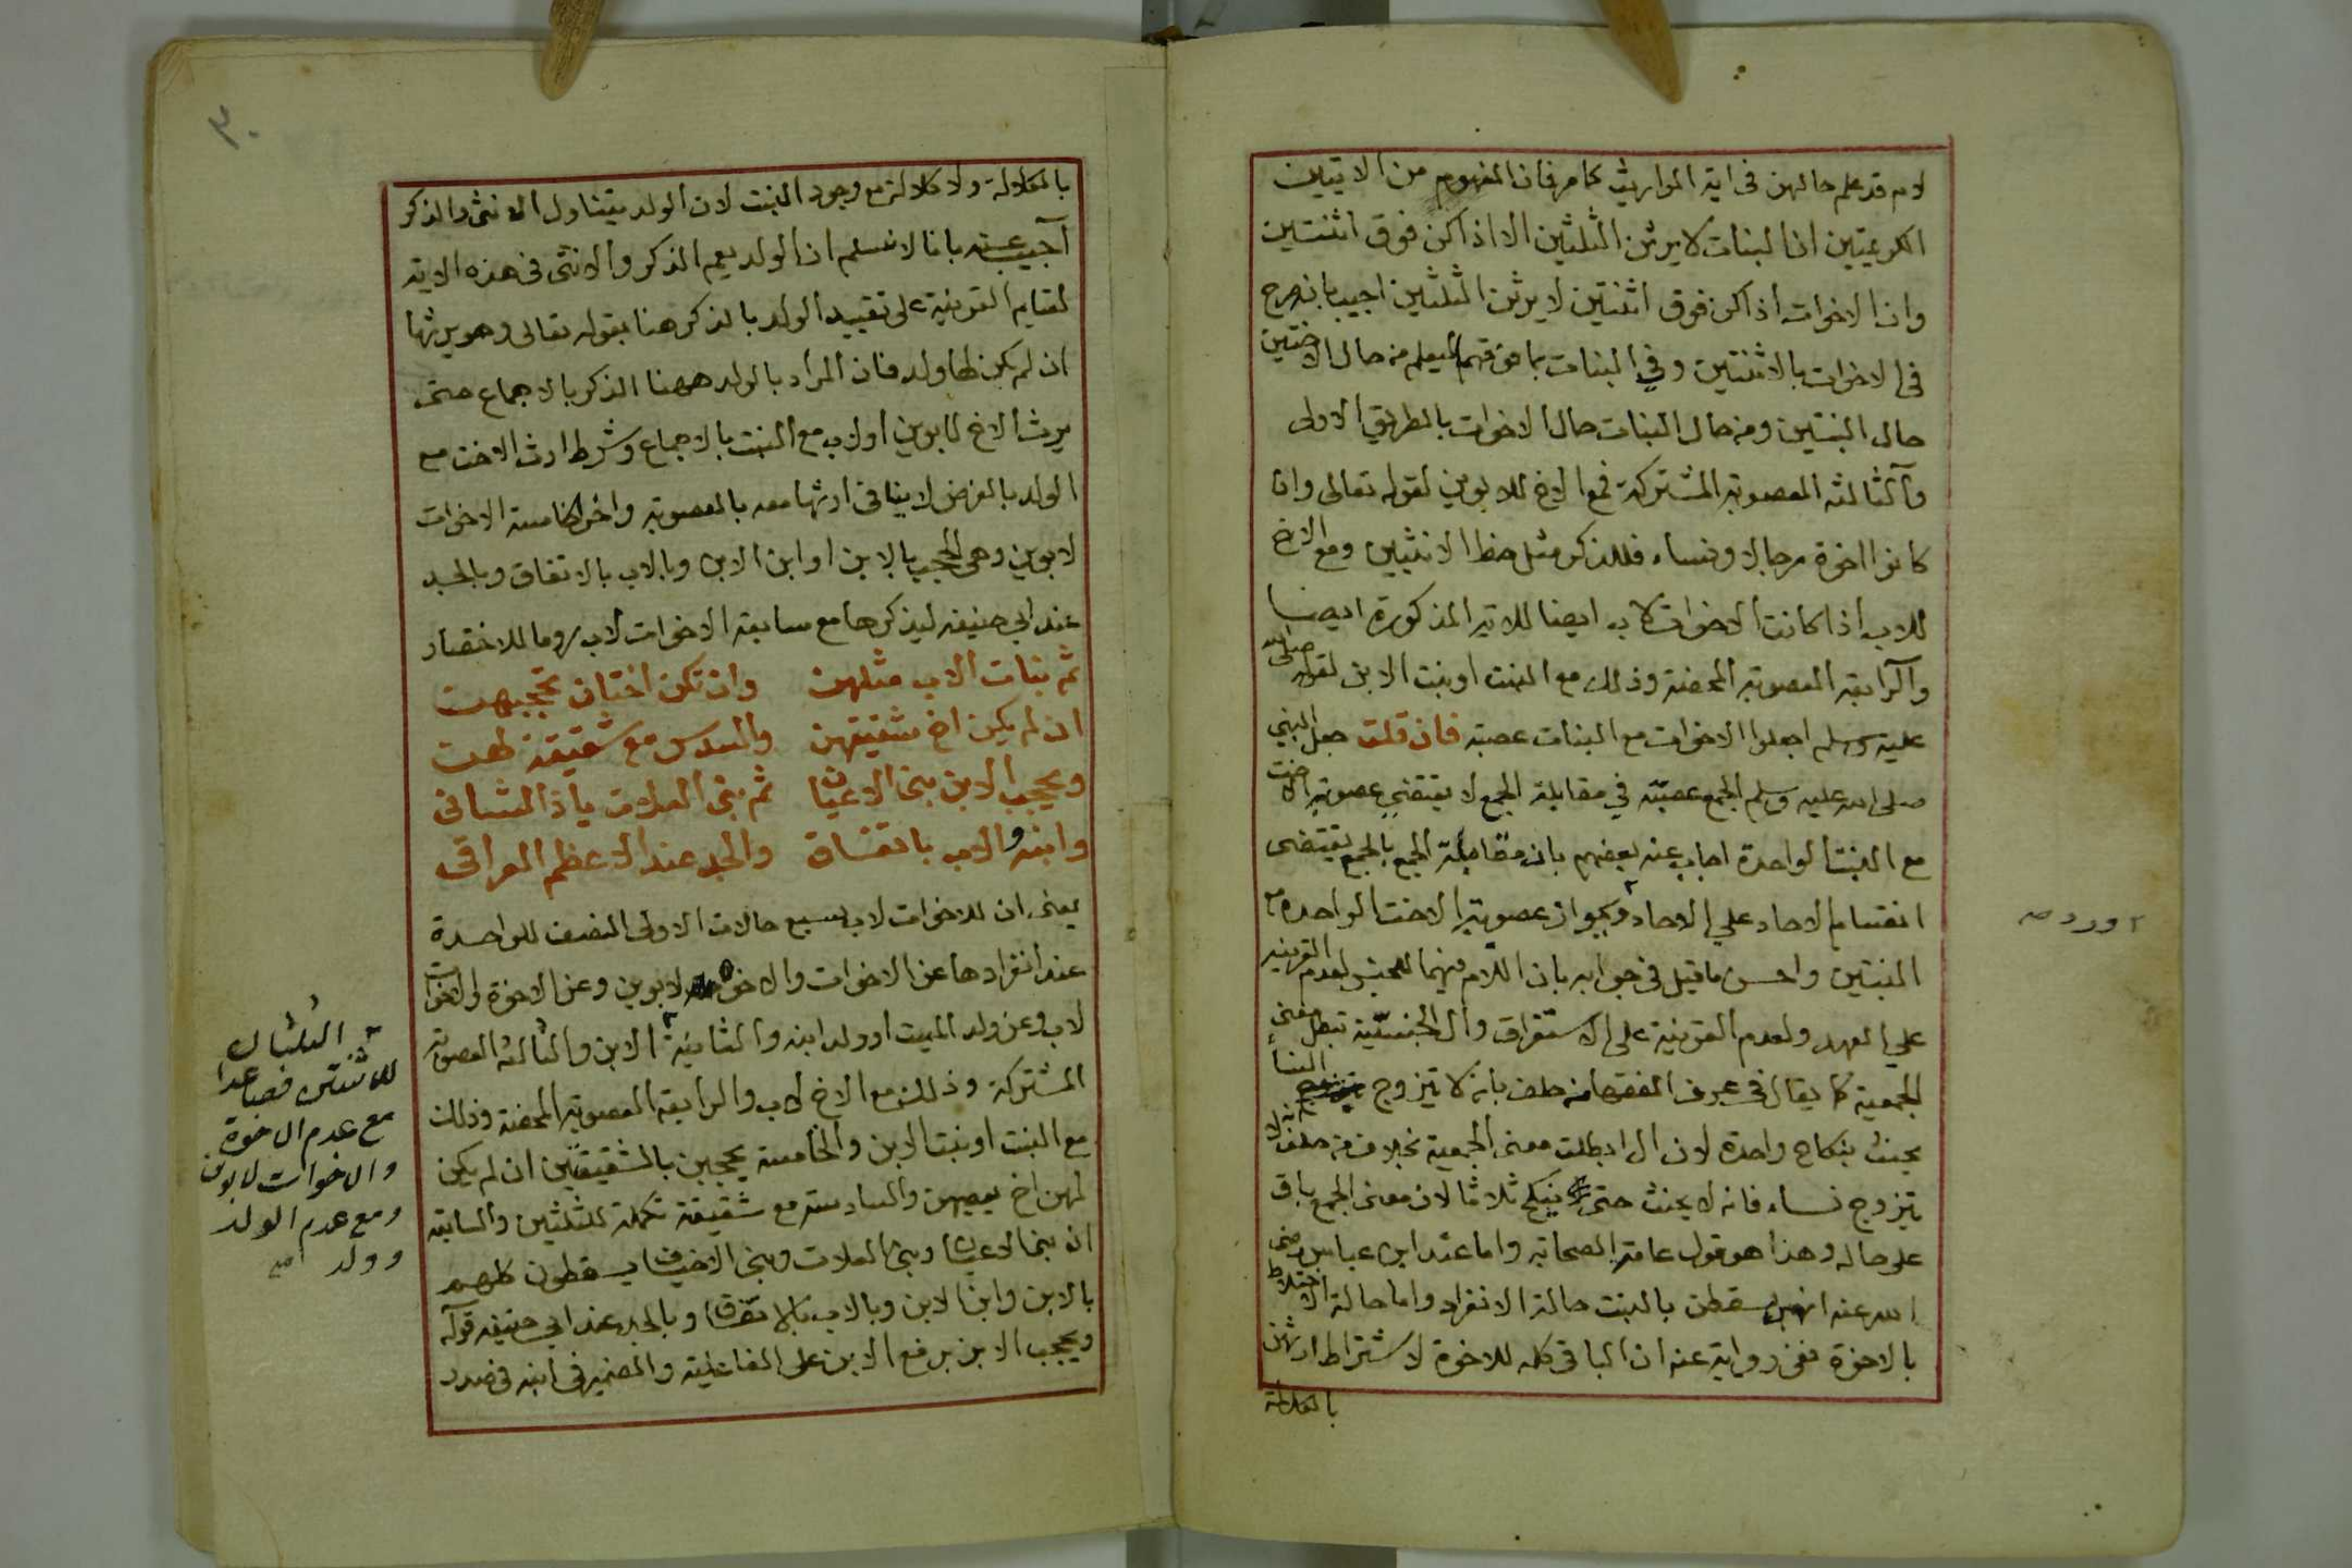 لام قد علم حالهن فى اية المواريث كما مر فان المفهوم من الايتين
الكريمتين ان البنات لا يرثن الثلثين الا اذا كن فوق اثنتين
وان الاخوات اذا كن فوق اثنتين لا يرثن الثلثين اجيب بانه صرح
فى الاخوات بالاثنتين وفي البنات بما فوقهما ليعلم من حال الاختين
حال البنتين ومن حال البنات حال الاخوات بالطريق الاولى
والثالثه العصوبة المشتركة فمع الاخ للابوين لقوله تعالى وان
كانوا اخوة رجالا ونساء فللذكر مثل حظ الانثيين ومع الاخ
للاب اذا كانت الاخوات لاب ايضا للاية المذكورة ايضا
والرابعة العصوبة المحضة وذلك مع البنت او بنت الابن لقوله صلى الله
عليه وسلم اجعلوا الاخوات مع البنات عصبة فان قلت جعل النبي
صلى الله عليه وسلم الجمع عصبة في مقابلة الجمع لا يقتضي عصوبة الاخت
مع البنت الواحدة اجاب عنه بعضهم بان مقابلة الجمع بالجمع يقتضى
انقسام الاحاد علي الاحاد ٢ ويجواز عصوبة الاخت الواحدة مع
البنتين واحسن ما قيل فى جوابه بان اللام فيهما للجنس لعدم القرينة
علي العهد ولعدم القرينة على الاستغراق وال الجنسية تبطل معنى
الجمعية كما يقال فى عرف الفقهاء من حلف بانه لا يتزوج النساء
يحنث بنكاح واحدة لان ال ابطلت معنى الجمعية بخلاف من حلف لا
يتزوج نساء فانه لا يحنث حتى ينكح ثلاثا لان معنى الجمع باق
على حاله وهذا هو قول عامة الصحابة واما عند ابن عباس رضى
الله عنه انهن يسقطن بالبنت حالة الانفراد واما حالة الاختلاط
بالاخوة ففى رواية عنه ان الباقى كله للاخوة لاشتراط ارثهن
بالكلالة
٢ اورد صح
٣٠
بالكلالة ولا كلالة مع وجود البنت لان الولد يتناول الانثى والذكر
اجيب عنه بانا لا نسلم ان الولد يعم الذكر والانثى فى هذه الاية
لقيام القرينة على تقييد الولد بالذكر هنا بقوله تعالى وهو يرثها
ان لم يكن لها ولد فان المراد بالولد ههنا الذكر بالاجماع حتى
يرث الاخ لابوين اولاب مع البنت بالاجماع وشرط ارث الاخت مع
الولد بالفرض لا ينافى ارثها معه بالعصوبة واخر الخامسة الاخوات
لابوين وهى الحجب بالابن او ابن الابن وبالاب بالاتفاق وبالجد
عند ابي حنيفه ليذكرها مع سابعة الاخوات لاب روما للاختصار
ثم بنات الاب مثلهن وان تكن اختان تحجبهت
ان لم يكن اخ شقيقهن والسدس مع شقيقة لهت
ويحجب الابن بنى الاعيان ثم بنى العلات ياذ الشانى
وابنه والاب باتفاق والجد عند الاعظم العراقى
يعنى ان للاخوات لاب سبع حالات الاولى النصف للواحدة
عند انفرادها عن الاخوات والاخوة لابوين وعن الاخوة والاخوات
لاب وعن ولد الميت او ولد ابنه والثانية ٢ الابن والثالثة العصوبة
المشتركة وذلك مع الاخ لاب والرابعة العصوبة المحضة وذلك
مع البنت او بنت الابن والخامسة يحجبن بالشقيقتين ان لم يكن
لهن اخ يعصبهن والسادسة مع شقيقة تكملة للثلثين والسابعة
ان بنى الاعيان وبنى العلات وبنى الاخياف يسقطون كلهم
بالابن وابن الابن وبالاب بالاتفاق وبالجد عند ابي حنيفه قوله
ويحجب الابن برفع الابن على الفاعلية والضمير فى ابنه فى صدر
٢ الثلثان
للاثنتين فصاعدا
مع عدم الاخوة
والاخوات لابوين
ومع عدم الولد
وولد